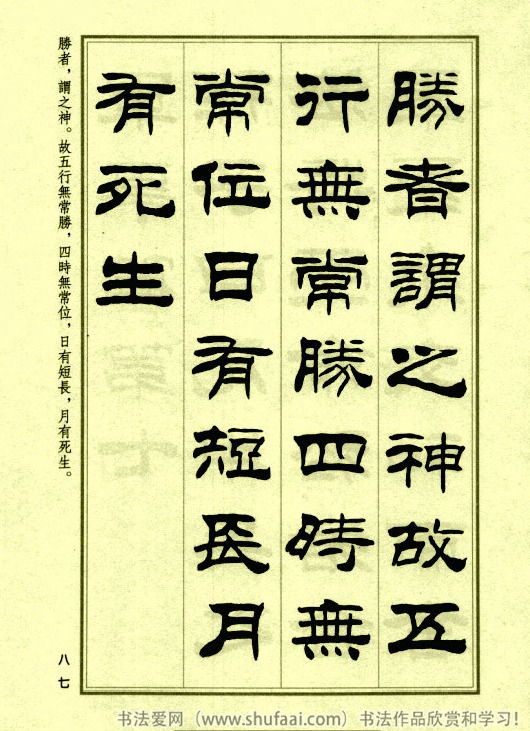 勝者謂之神故五
行無常勝四時無
常位日有短長月
有死生
勝者，謂之神。故五行無常勝，四時無常位，日有短長，月有死生。
八七
书法爱网（www.shufaai.com）书法作品欣赏和学习！